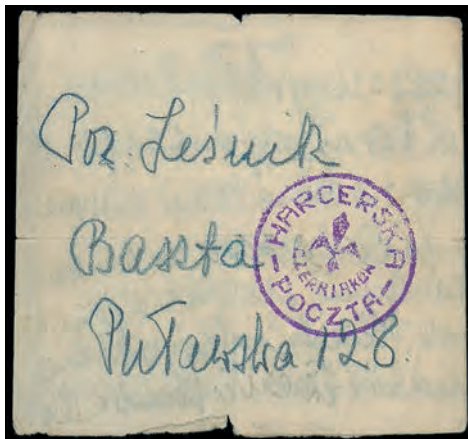 Poz. Leśnik
Baszta
Puławska 128.
HARCERSKA
CZERNIAKÓW
POCZTA